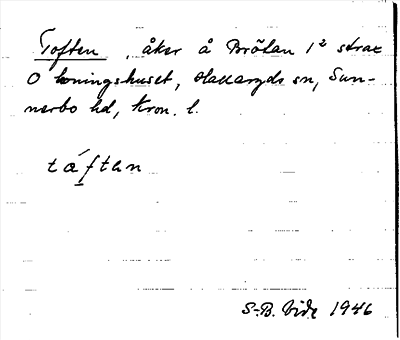 Toften, åker å Brötan 1² strax
O boningshuset, Hallaryds sn, Sun-
nerbo hd, Kron. l.
táftɘn
S-B. Vide 1946